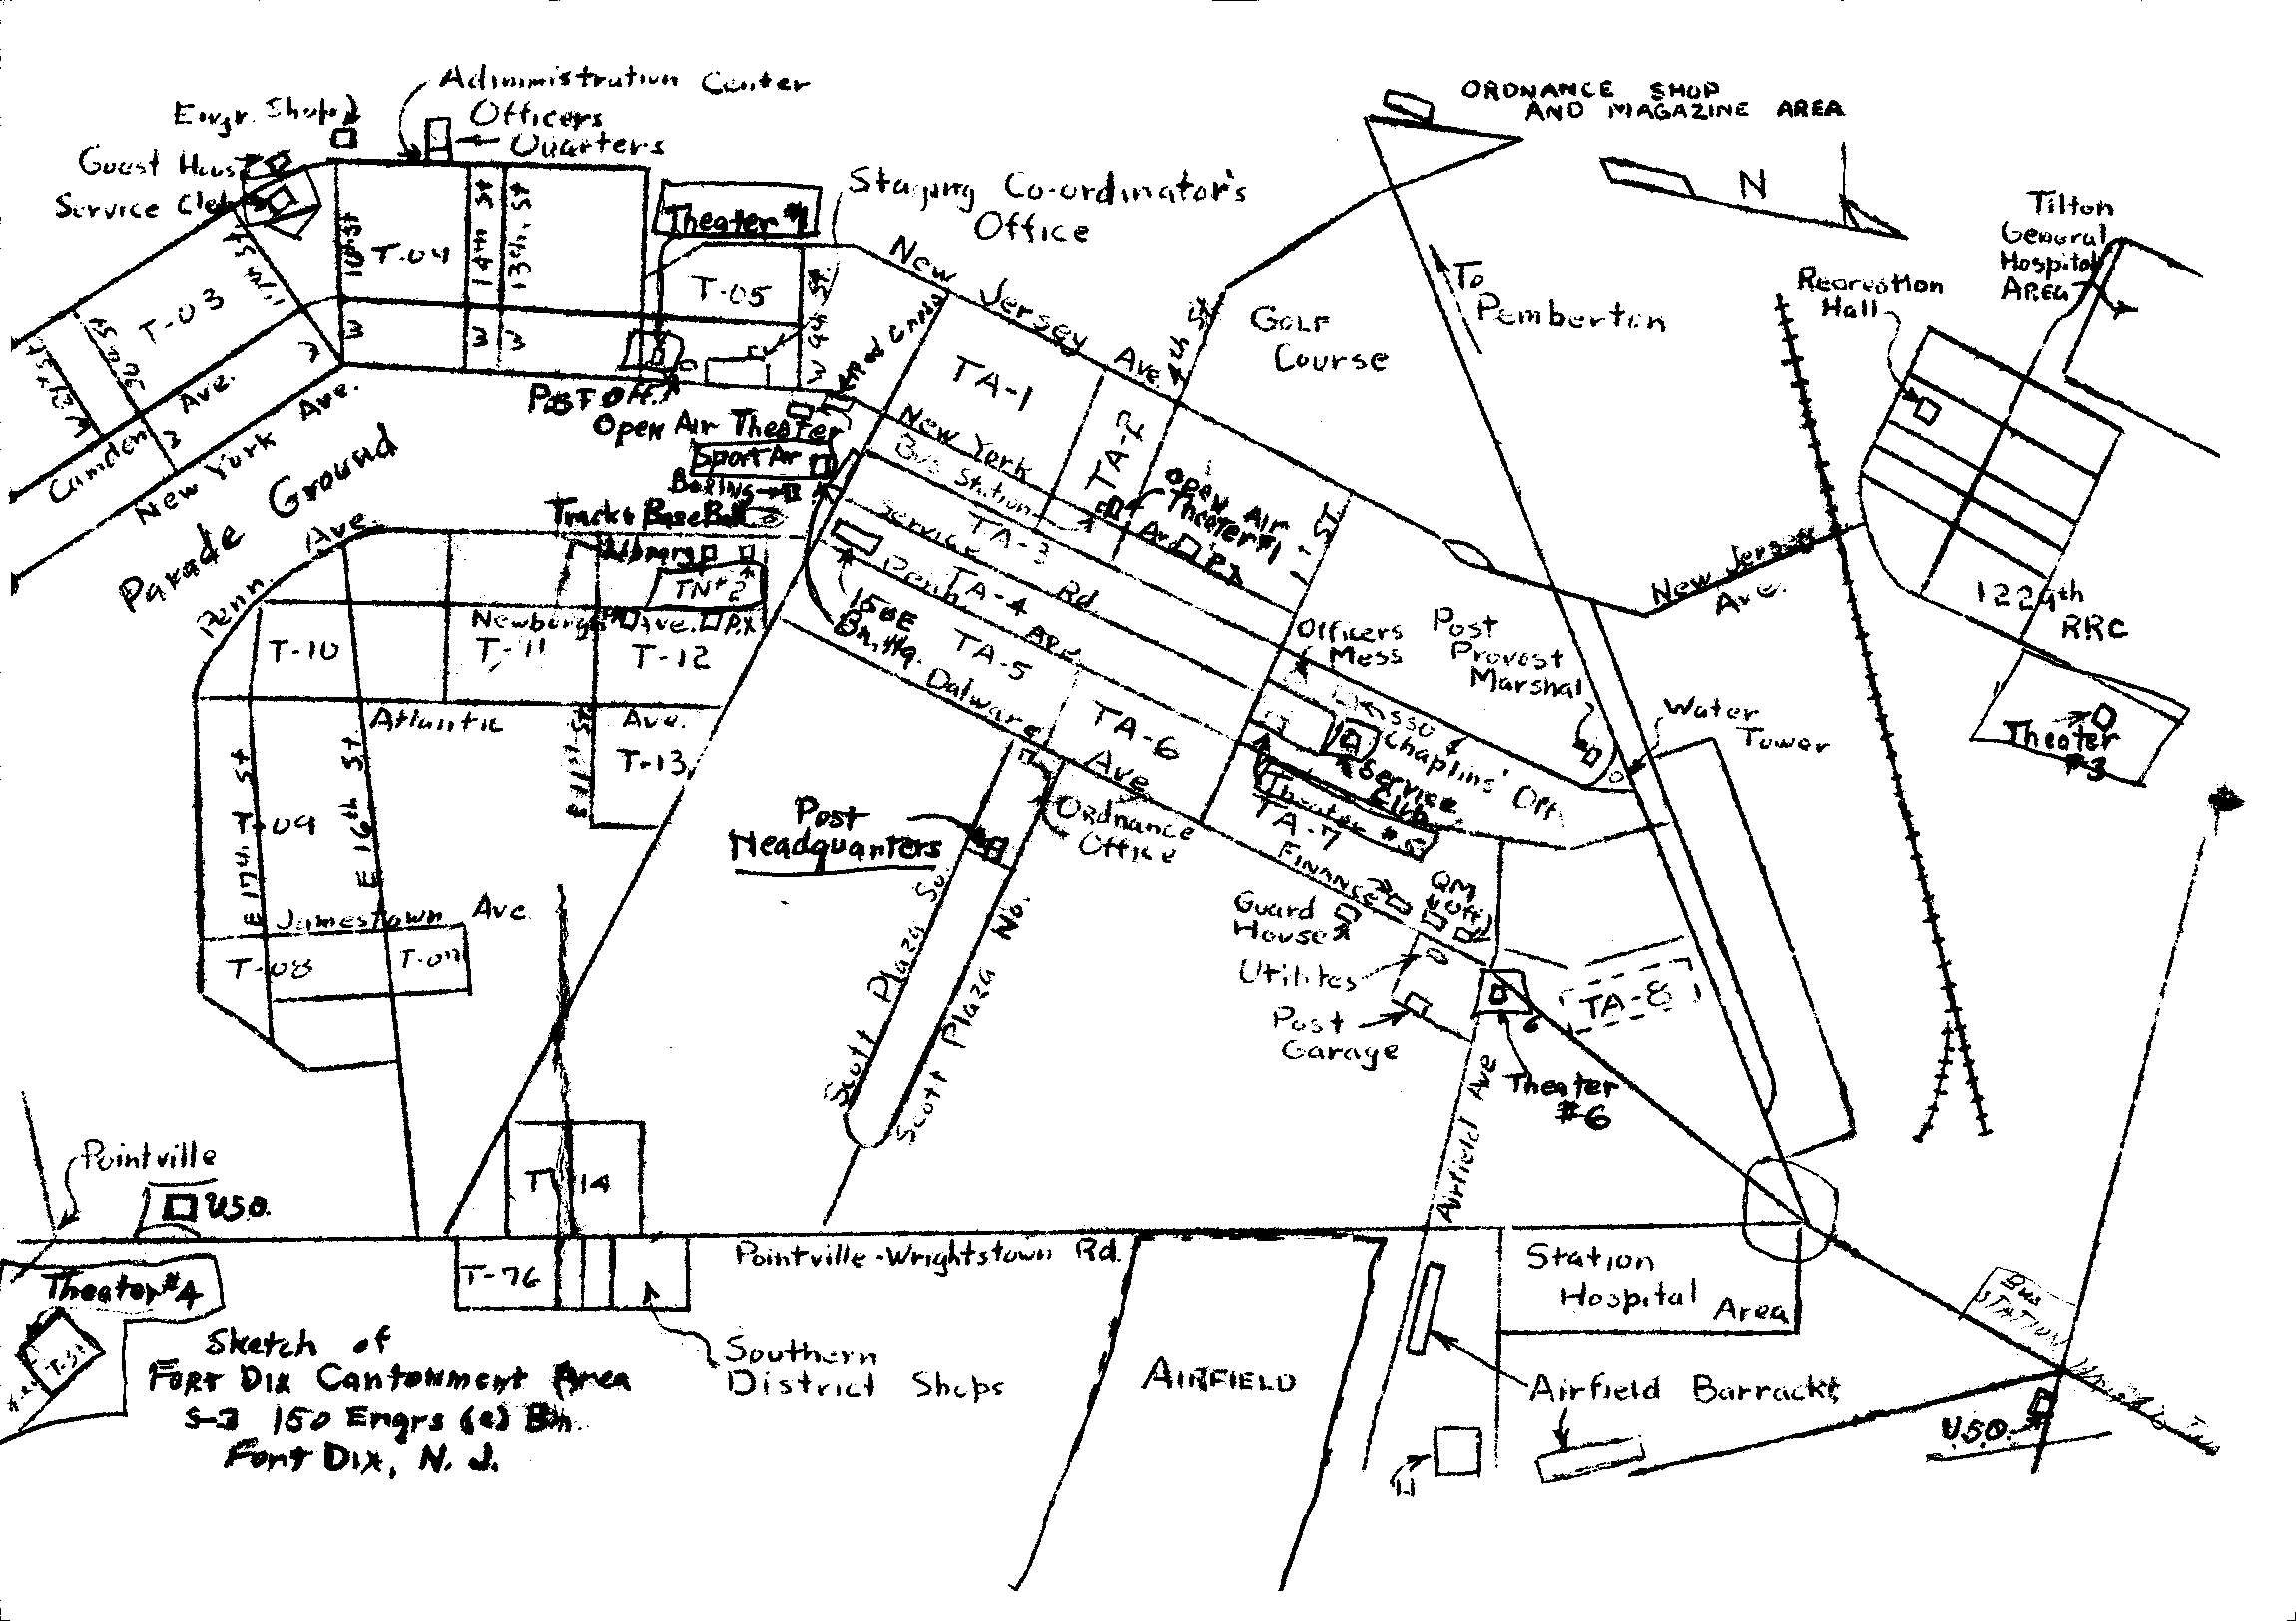 Administration Center
Officers
Quarters
Engr. Shop
Guest House
Service Club
ORDNANCE SHOP
AND MAGAZINE AREA
N
Tilton
General
Hospital
AREA
Recreation
Hall
Theater #1
Staging Co-ordinator's
Office
T-03
T-04
14th St
13th. St
W
W
W
T-05
W 9th St.
New Jersey Ave.
4th St.
GOLF
Course
To
Pemberton
TA-1
TA-2
New York
Bus Station
Post Off.
Open Air Theater
Sport Ar
Boxing
Track & Base Ball
Library
TN#2
Camden Ave.
New York Ave.
Parade Ground
Penn. Ave.
Newburgh Ave.
P.X
T-10
T-11
T-12
Atlantic Ave.
T-13
E 11th St
E 17th. St
E 16th St.
T-09
Jamestown Ave
T-08
T-07
Open Air
Theater #1
P.X
1st ST.
TA-3
Service Rd
TA-4
Penn. Ave
TA-5
150E
Bn. Hq.
Dalware Ave
TA-6
Officers
Mess
Post
Provost
Marshal
SSO
Chaplins' Off.
Service
Club
Theater #5
TA-7
Water
Tower
New Jersey
Ave.
1229th
RRC
Theater
#3
Post
Headquarters
Ordnance
Office
Scott Plaza So.
Scott Plaza No.
FINANCE
QM
Off.
Guard
House
Utilites
Post
Garage
TA-8
Theater
#6
Airfield Ave
Pointville
U.S.O.
T-14
T-76
Pointville-Wrightstown Rd.
Station
Hospital Area
Bus
STATION
Theater #4
Southern
District Shops
AIRFIELD
Airfield Barracks
U.S.O.
Sketch of
FORT DIX Cantonment Area
S-3 150 Engrs (c) Bn.
Fort Dix, N. J.